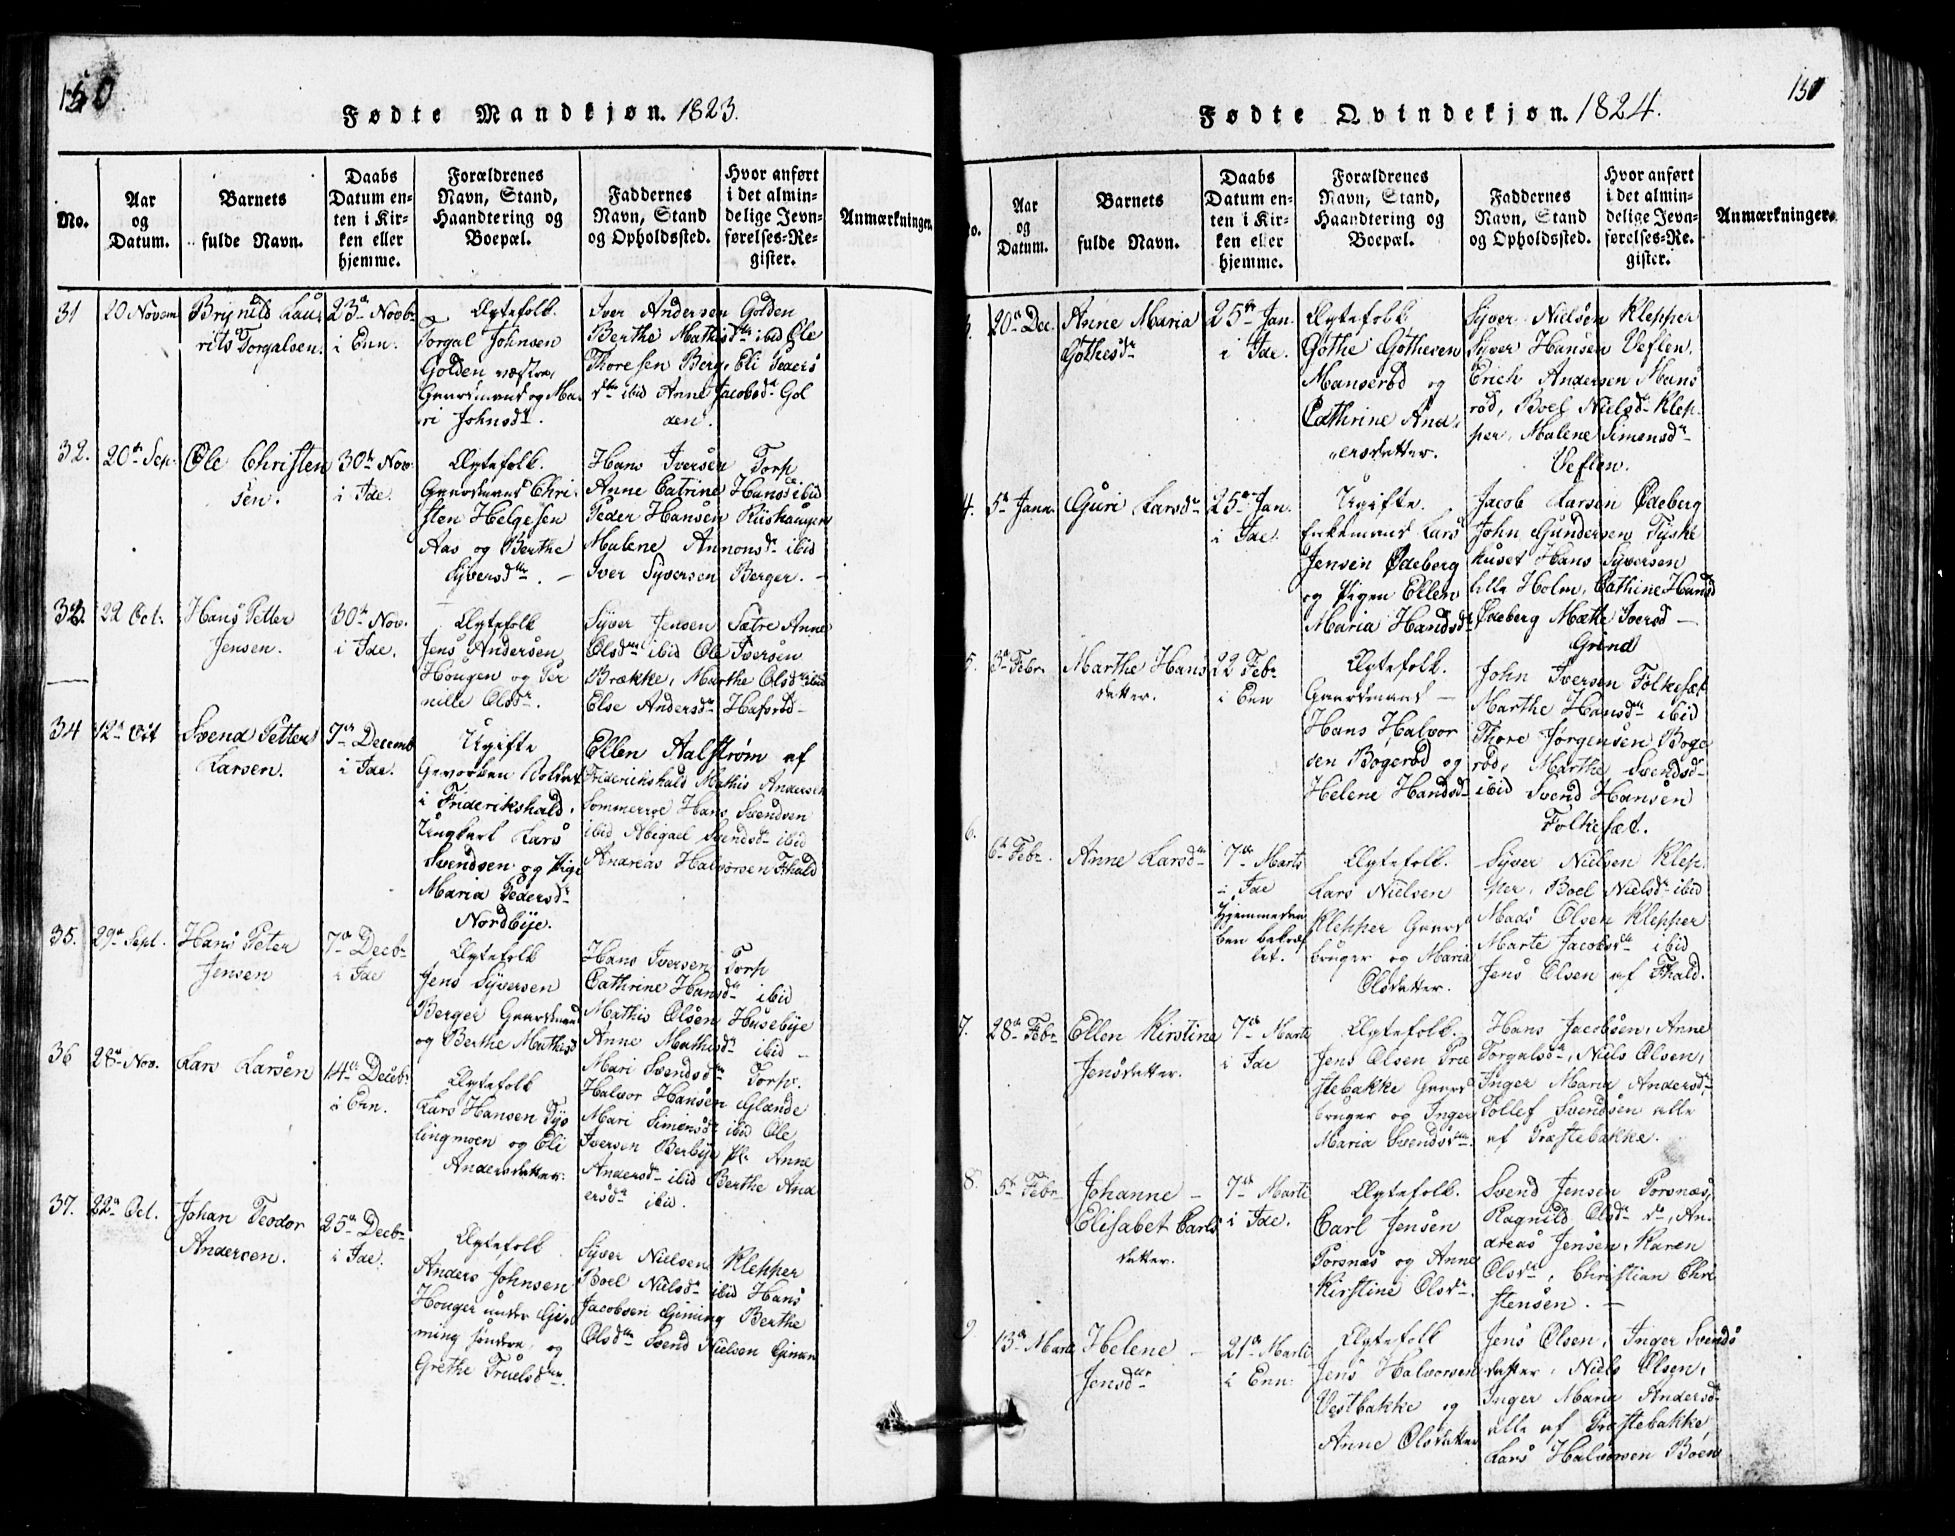 150
Fødte Mandkjøn. 1823.
No.
Aar
og
Datum.
Barnets
fulde Navn.
Daabs
Datum en-
ten i Kir-
ken eller
hjemme.
Forældrenes
Navn, Stand,
Haandtering og
Boepæl.
Faddernes
Navn, Stand
og Opholdssted.
Hvor anført
i det almin-
delige Jevn-
førelses-Re-
gister.
Anmærkninger.
31
20 Novem
Brijnild Lau
rits Torgalsen.
23de Novbr
i Enn.
Ægtefolk.
Torgal Johnsen
Golden væstre,
Gaardmand og Ma-
ri Johnsdr.
Iver Andersen Golden
Berthe Mathisdtr ibid Ole
Thoresen Berg, Eli Peders
dtr ibid Anne Jacobsd. Gol
den.
32.
20de Sep.
Ole Christen
sen.
30te Nov.
i Ide.
Ægtefolk.
Gaardmand Chri-
sten Helgesen
Aas og Berthe
Syversdtr. —
Hans Iversen Torp
Anne Catrine Hansd ibid
Peder Hansen Riishaugen
Malene Annonsdr ibid
Iver Syversen Berger. —
33.
22 Oct.
Hans Petter
Jensen.
30te Nov.
i Ide.
Ægtefolk
Jens Andersen
Hougen og Per
nille Olsdr.
Syver Jensen Sætre Anne
Olsdtr ibid Ole Iversen
Brække, Marthe Olsdr ibid
Else Andersdr Haførød —
34
12te Oct
Svend Petter
Larsen.
7de Decemb
i Ide.
Ugifte
Gevorben Soldat
i Friderikshald.
Ungkarl Lars
Svendsen og Pige
Maria Pedersdr
Nordbye.
Ellen Aalstrøm af
Friderikshald Mathis Andersen
Sommerroe Hans Svendsen
ibid Abigael Svendsdr ibid
Andreas Halvorsen Fhald
35.
29de Sept.
Hans Peter
Jensen
7de Decbr
i Ide
Ægtefolk
Jens Syversen
Berger Gaardmand
og Berthe Mathisd
Hans Iversen Torp
Cathrine Hansdr ibid
Mathis Olsen Husebye
Anne Mathisdr ibid —
Mari Svendsdtr Torp.
36
28de Nov.
Lars Larsen
14de Decbr
i Enn.
Ægtefolk
Lars Hansen Tys
lingmoen og Eli
Andersdatter.
Halvor Hansen Glænde
Mari Simensdr ibid Ole
Iversen Berbye Pl. Anne
Andersdr ibid Berthe And
ersdr ibid.
37.
22de Oct.
Johan Teodor
Andersen.
25de Decbr
i Ide.
Ægtefolk
Anders Johnsen
Houger under Gie-
ming søndre, og
Grethe Truelsdtr.
Syver Nielsen Klepper
Boel Nielsdr ibid Hans
Jacobsen Gieming Berthe
Olsdtr Svend Nielsen
151
Fødte Qvindekjøn. 1824.
No.
Aar
og
Datum.
Barnets
fulde Navn.
Daabs
Datum en-
ten i Kir-
ken eller
hjemme.
Forældrenes
Navn, Stand,
Haandtering og
Boepæl.
Faddernes
Navn, Stand
og Opholdssted.
Hvor anført
i det almin-
delige Jevn-
førelses-Re-
gister.
Anmærkninger.
3.
20de Dec.
Anne Maria
Gøthesdr
25de Jan.
i Ide.
Ægtefolk
Gøthe Gøthesen
Mansrød og
Cathrine And-
ersdatter.
Syver Nielsen Klepper
Syver Hansen Veflen.
Erich Andersen Mans
rød, Boel Nielsdr Klep-
per, Malene Simensdr
Veflen.
4.
5te Jann.
Guri Larsdr
25de Jan.
i Ide.
Ugifte.
Enkemand Lars
Jensen Ødeberg
og Pigen Ellen
Maria Handsdr
Jacob Larsen Ødeberg
John Gundersen Tyske
huset Hans Syversen
lille Holm, Cathine Hansd
Ødeberg Mætte Iversd —
Grind
5.
3de Febr.
Marthe Hans
datter.
22 Febr
i Enn
Ægtefolk.
Gaardmand —
Hans Halvor
sen Bogerød og
Helene Handsdr
John Iversen Folkesæt
Marthe Hansdr ibid
Thore Jørgensen Boge
rød, Marthe Svendsd —
ibid Svend Hansen
Folkesæt.
6.
6te Febr.
Anne Larsdtr
7de Marts
i Ide
Hjemmedaa
ben bekræf
tet.
Ægtefolk.
Lars Nielsen
Klepper Gaard
bruger og Maria
Olsdatter.
Syver Nielsen Klep-
per, Boel Nielsdr ibid
Mads Olsen Klepper
Marte Jacobsdtr ibid
Jens Olsen af Fhald.
7.
28de Febr
Ellen Kirstine
Jensdatter.
7de Marti
i Ide
Ægtefolk.
Jens Olsen Præ
stebakke Gaard
bruger og Inger
Maria Svendsdtr.
Hans Jacobsen, Anne
Torgalsdr, Niels Olsen,
Inger Maria Andersdr
Tollef Svendsen alle
af Præstebakke.
8.
5te Febr
Johanne —
Elisabet Carls
datter.
7de Marti
i Ide.
Ægtefolk.
Carl Jensen
Porsnæs og Anne
Kirstine Olsdr.
Svend Jensen Porsnæs,
Ragnild Olsdr do, An-
dreas Jensen, Karen
Olsdr, Christian Chri
stensen. —
9
13de Marti
Helene —
Jensdtr
21de Marti
i Enn.
Ægtefolk
Jens Halvorsen
Vestbakke og
Anne Olsdatter
Jens Olsen, Inger Svends
datter, Niels Olsen,
Inger Maria Andersdr
alle af Præstebakke,
Lars Halvorsen Boen